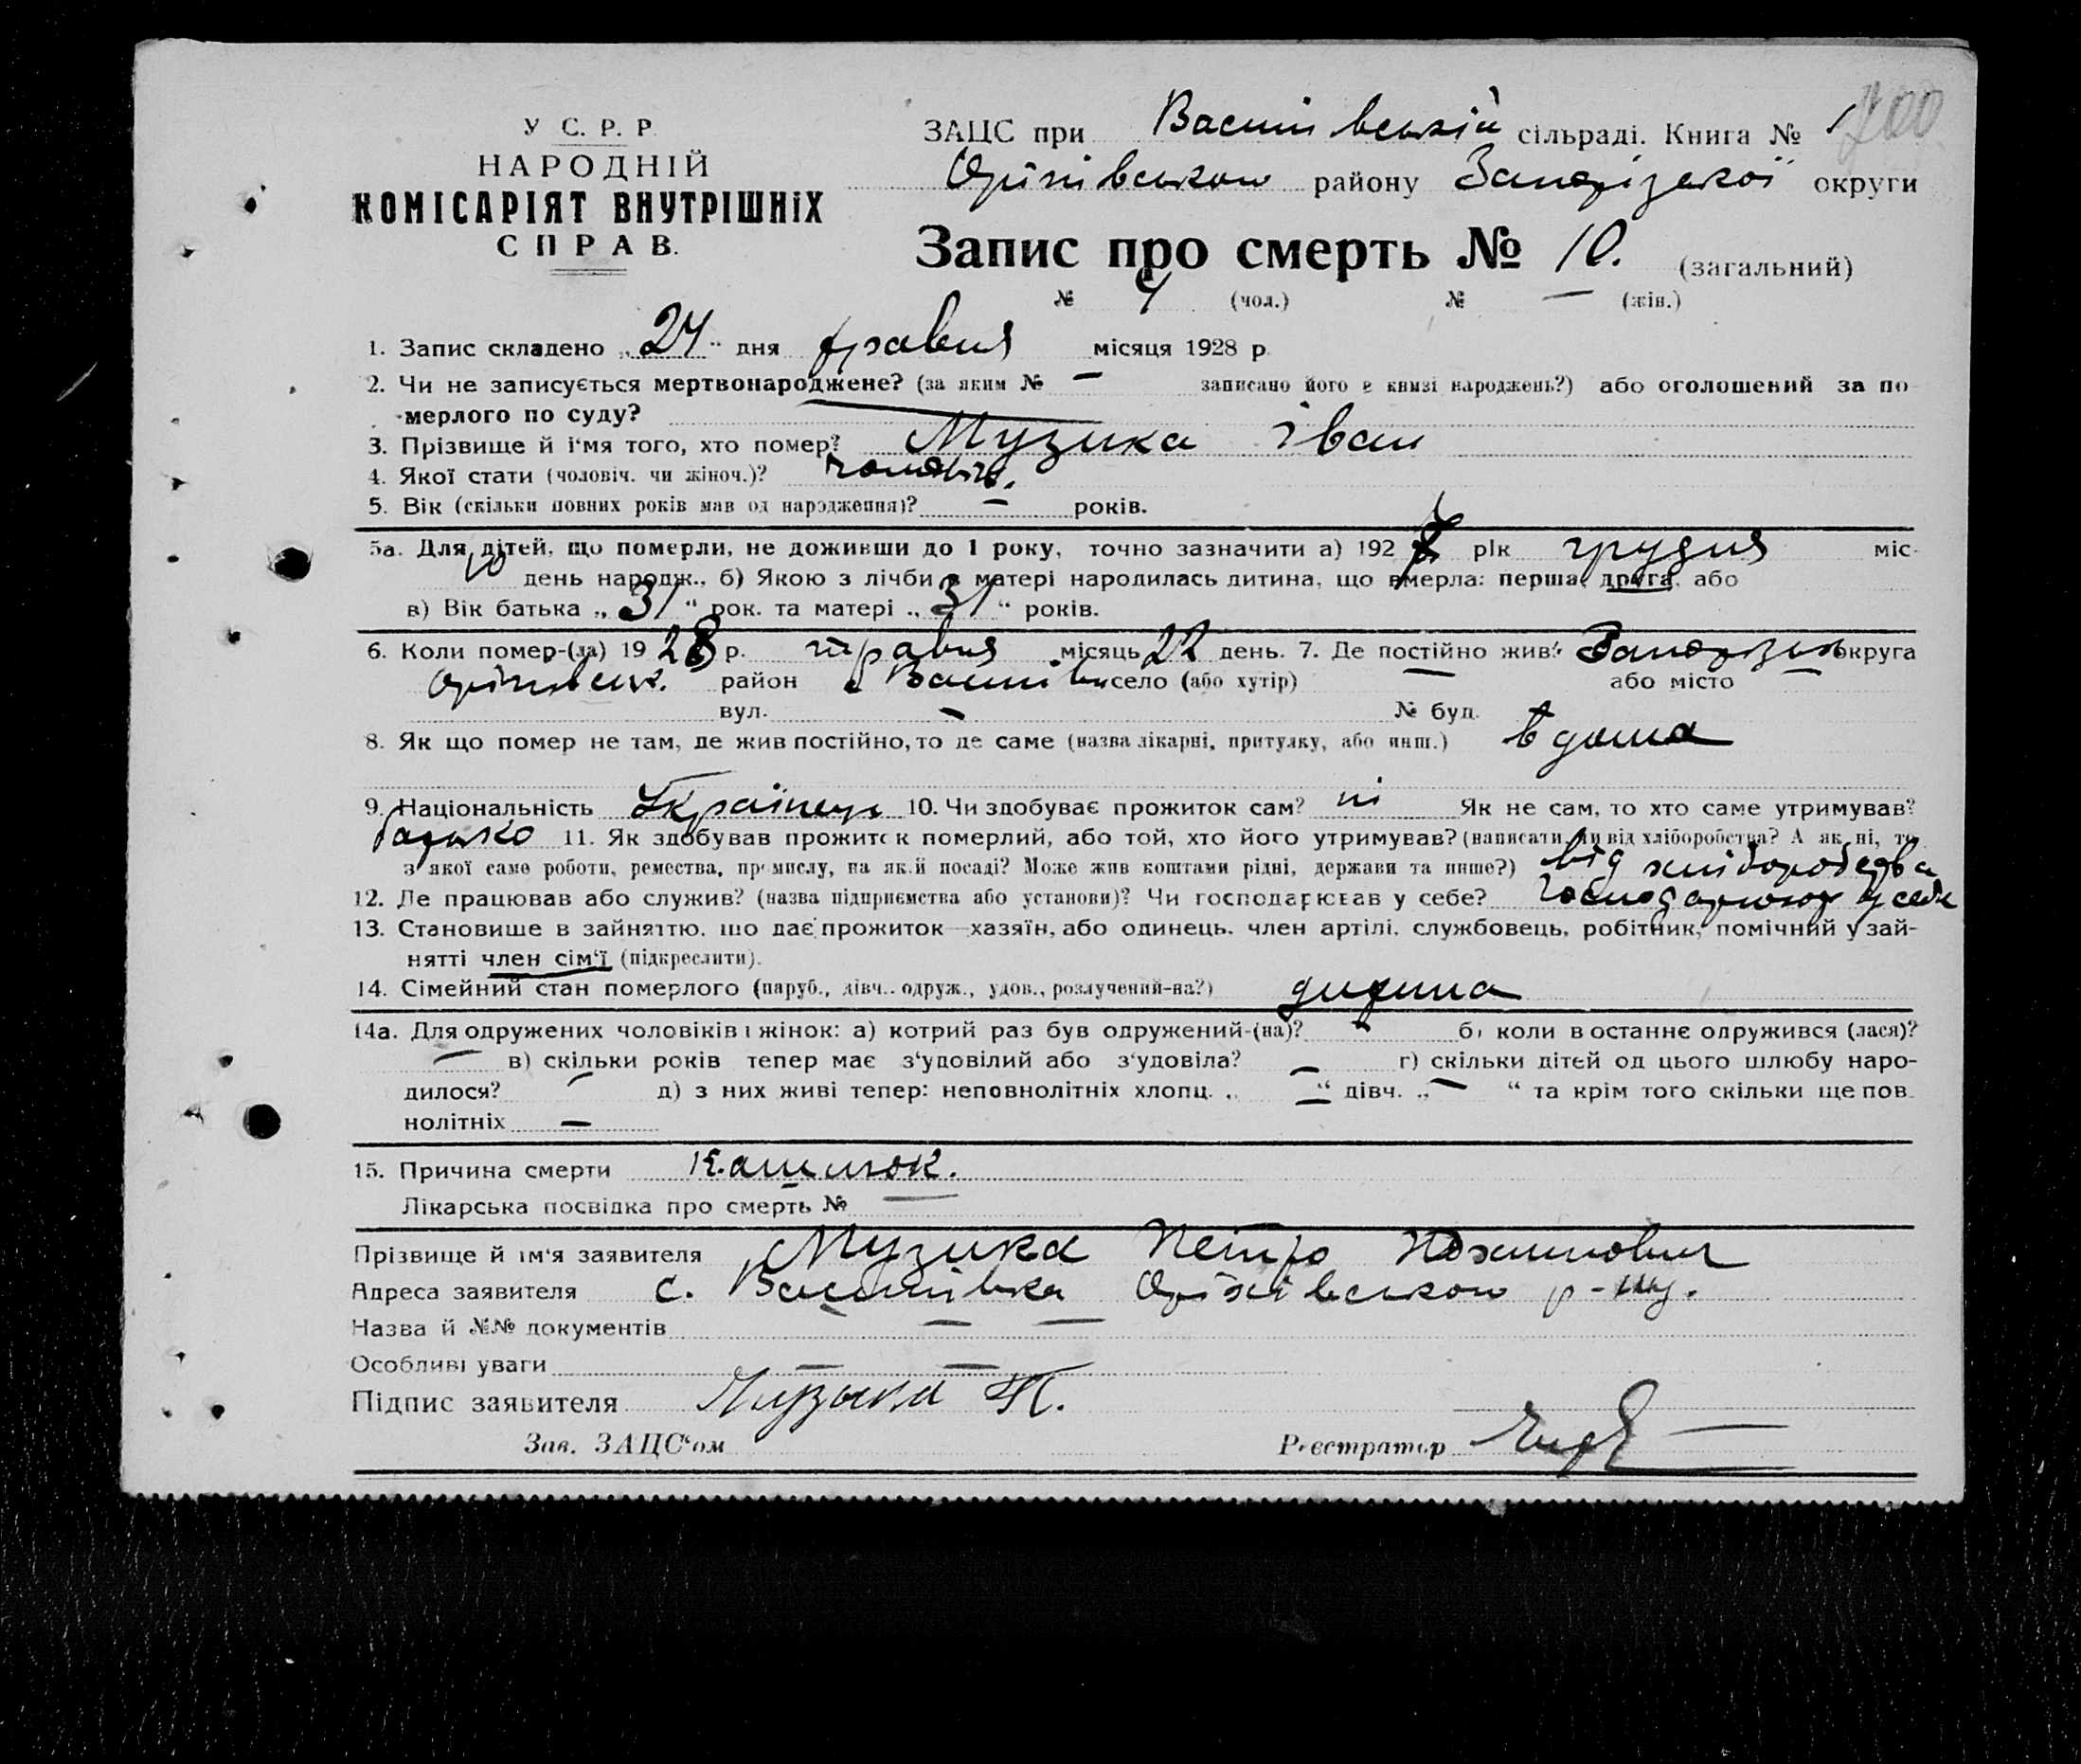 У С. Р. Р.
НАРОДНІЙ
КОМІСАРІЯТ ВНУТРІШНІХ
СПРАВ.
ЗАЦС при Василівській сільраді. Книга № 1
700
Оріхівського району Запорізької округи
Запис про смерть № 10. (загальний)
№ 4 (чол.) № — (жін.)
1. Запис складено „24“ дня травня місяця 1928 р.
2. Чи не записується мертвонароджене? (за яким № — записано його в книзі народжень?) або оголошений за по-
мерлого по суду?
3. Прізвище й і'мя того, хто помер? Музика Іван
4. Якої стати (чоловіч. чи жіноч.)? чоловіч.
5. Вік (скільки повних років мав од народження)? — років.
5а. Для дітей, що померли, не доживши до 1 року, точно зазначити а) 192 рік грудня міс.
10 день народж., б) Якою з лічби в матері народилась дитина, що вмерла: перша, друга, або
в) Вік батька „31“ рок. та матері „31“ років.
6. Коли помер-(ла) 1928 р. травня місяць 22 день. 7. Де постійно жив? Запорізька округа
Оріхівськ. район Василівка село (або хутір) — або місто —
вул. — № буд.
8. Як що помер не там, де жив постійно, то де саме (назва лікарні, притулку, або инш.) вдома
9. Національність Українець 10. Чи здобуває прожиток сам? ні Як не сам, то хто саме утримував?
батько 11. Як здобував прожиток померлий, або той, хто його утримував? (написати, чи від хліборобства? А як ні, то
з якої саме роботи, ремества, промислу, на якій посаді? Може жив коштами рідні, держави та инше?) від хліборобства
12. Де працював або служив? (назва підприємства або установи)? Чи господарював у себе? Господарював у себе
13. Становище в зайняттю, що дає прожиток—хазяїн, або одинець, член артілі, службовець, робітник, помічний у зай-
нятті член сім'ї (підкреслити).
14. Сімейний стан померлого (паруб., дівч., одруж., удов., розлучений-на?) дитина
14а. Для одружених чоловіків і жінок: а) котрий раз був одружений-(на)? — б) коли востаннє одружився (лася)?
— в) скільки років тепер має з'удовілий або з'удовіла? — г) скільки дітей од цього шлюбу наро-
дилося? — д) з них живі тепер: неповнолітніх хлопц. „—“ дівч. „—“ та крім того скільки ще пов-
нолітніх —
15. Причина смерти Кашлюк.
Лікарська посвідка про смерть № —
Прізвище й ім'я заявителя Музика Петро
Адреса заявителя с. Василівка Оріхівського р-ну.
Назва й №№ документів — —
Особливі уваги — —
Підпис заявителя Музыка П.
Зав. ЗАЦС'ом Реєстратор